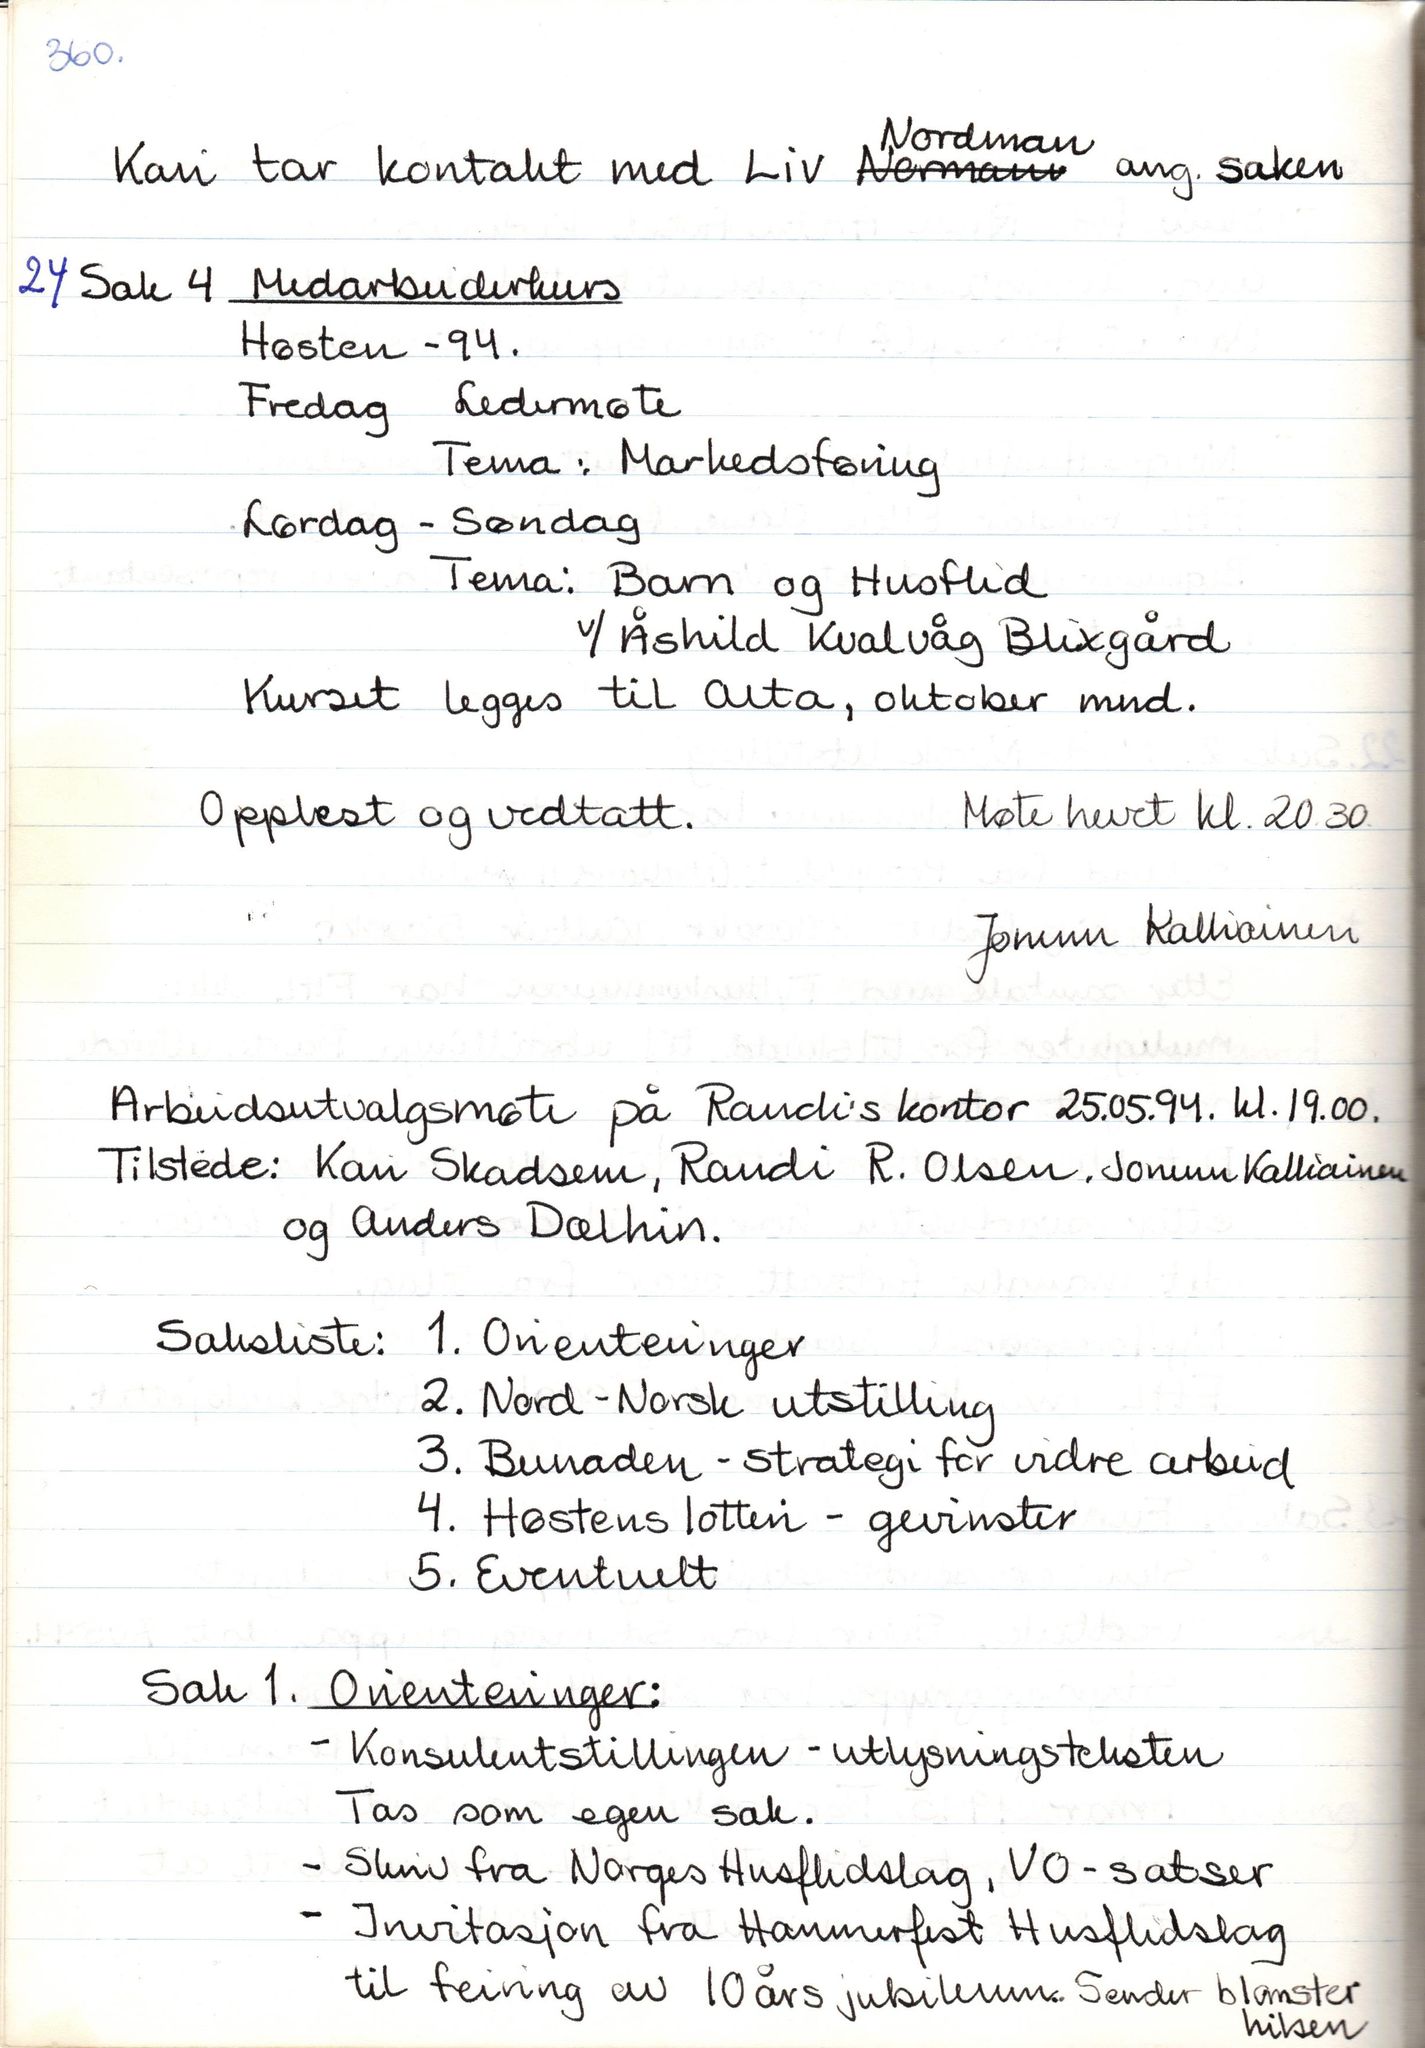 360.
Kari tar kontakt med Liv Normann Nordman ang. saken
24 Sak 4 Medarbeiderkurs
Høsten - 94.
Fredag Ledermøte
Tema: Markedsføring
Lørdag - Søndag
Tema: Barn og Husflid
v/ Åshild Kvalvåg Blixgård
Kurset legges til Alta, oktober mnd.
Opplest og vedtatt. Møte hevet kl. 20.30.
Jorunn Kalliainen
Arbeidsutvalgsmøte på Randi's kontor 25.05.94. kl. 19.00.
Tilstede: Kari Skadsem, Randi R. Olsen, Jorunn Kalliainen
og Anders Dælhin.
Saksliste: 1. Orienteringer
2. Nord-Norsk utstilling
3. Bunaden - strategi for vidre arbeid
4. Høstens lotteri - gevinster
5. Eventuelt
Sak 1. Orienteringer:
- Konsulentstillingen - utlysningsteksten
Tas som egen sak.
- Skriv fra Norges Husflidslag, VO-satser
- Invitasjon fra Hammerfest Husflidslag
til feiring av 10års jubileum. Sender blomster
hilsen